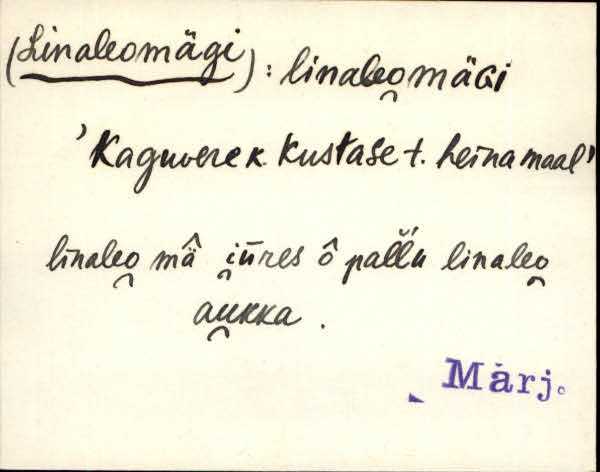 (Linaleomägi): linaleo̯mäGi
'Kaguvere k. Kustase t. heinamaal'
linaleo̯ mä̂ i̯ūres ô pal̆l̆u linaleo̯
au̯kka.
Märj.